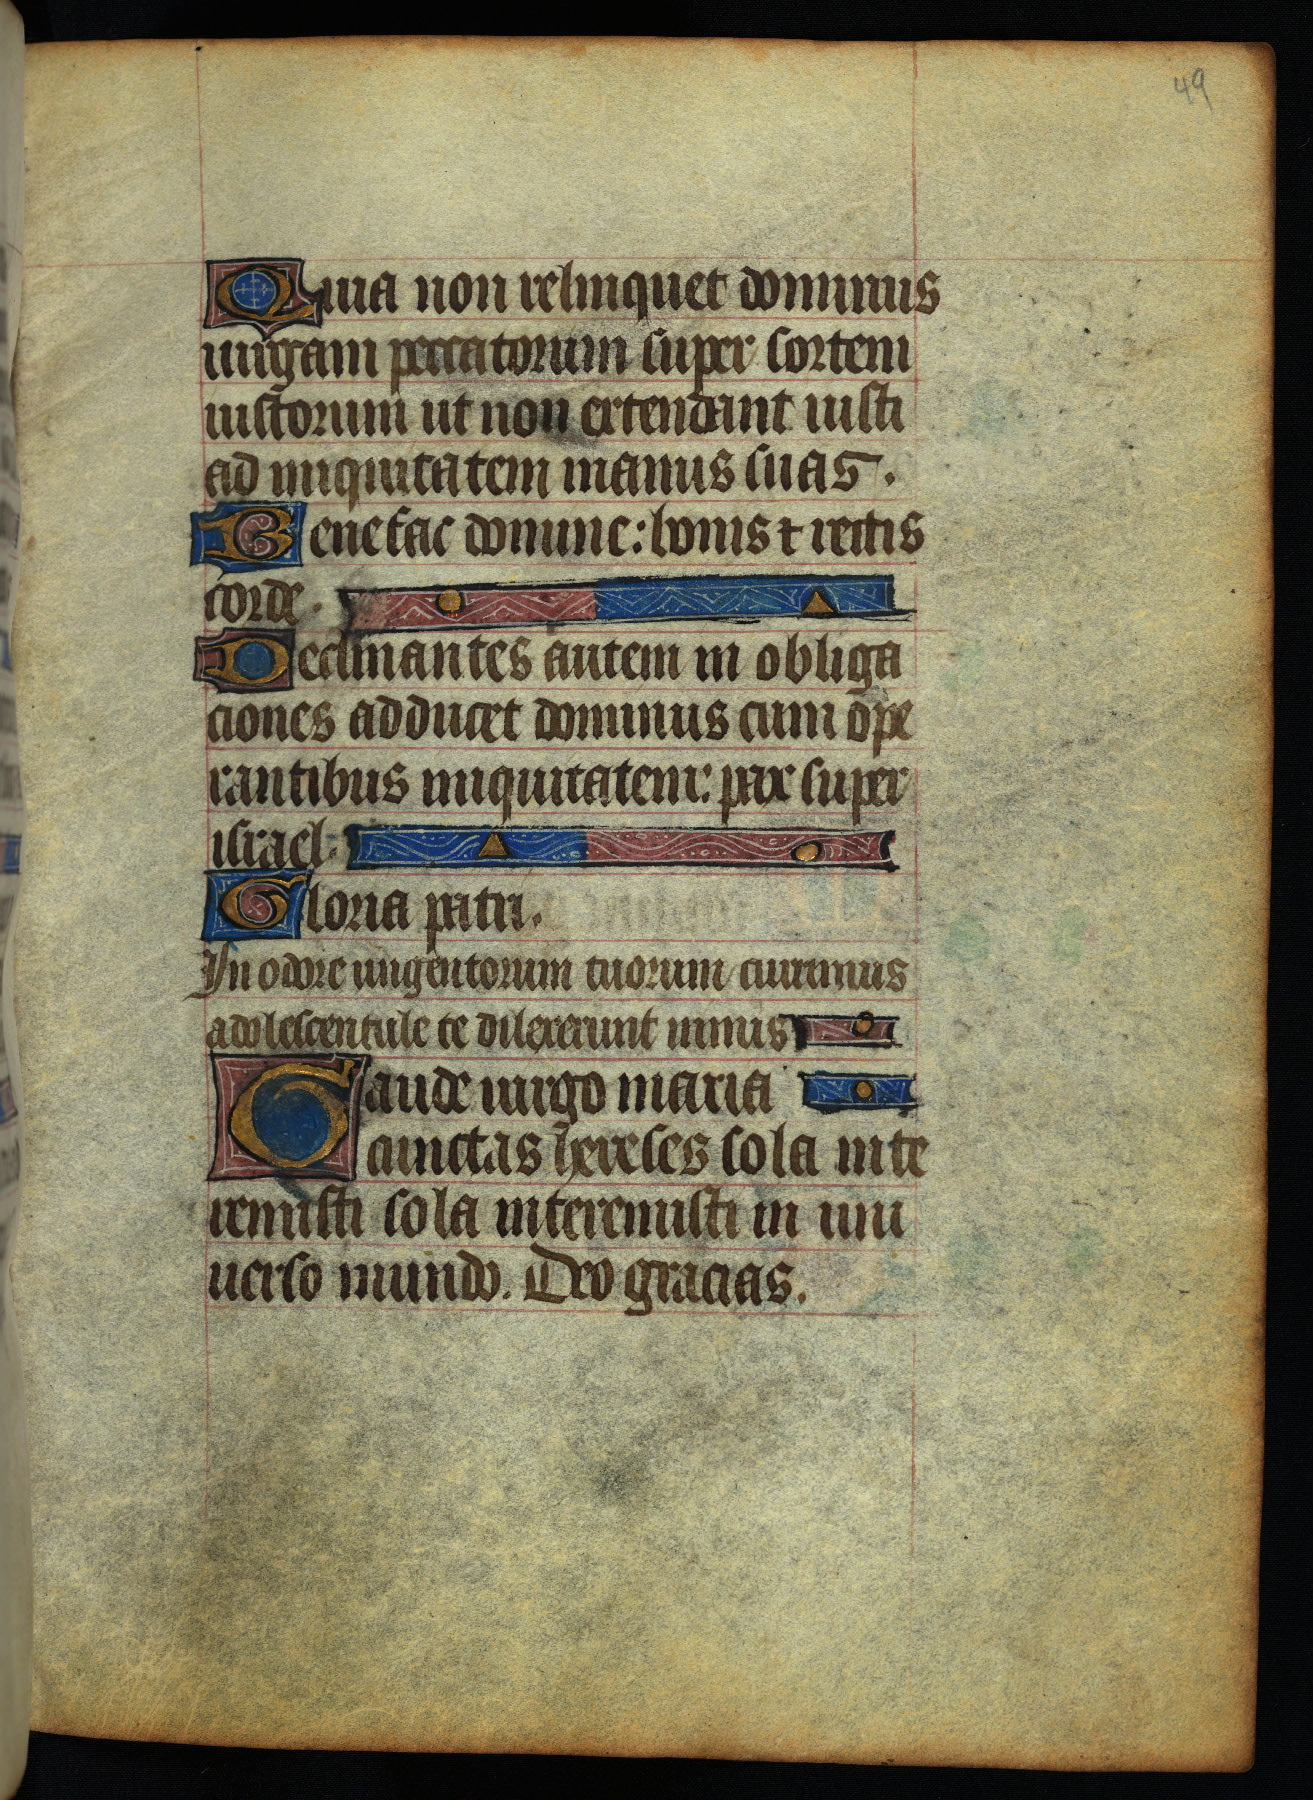 49
Quia non relinquet dominus
uirgam peccatorum super sortem
iustorum ut non extendant iusti
ad iniquitatem manus suas.
Benefac domine: bonis ⁊ rectis
corde.
Declinantes autem in obliga
ciones adducet dominus cum ope
rantibus iniquitatem: pax super
israel.
Gloria patri.
In odore ungentorum tuorum currimus
adolescentule te dilexerunt nimis
Gaude uirgo maria
cunctas hereses sola inte
remisti sola interemisti in uni
uerso mundo. Deo gracias.